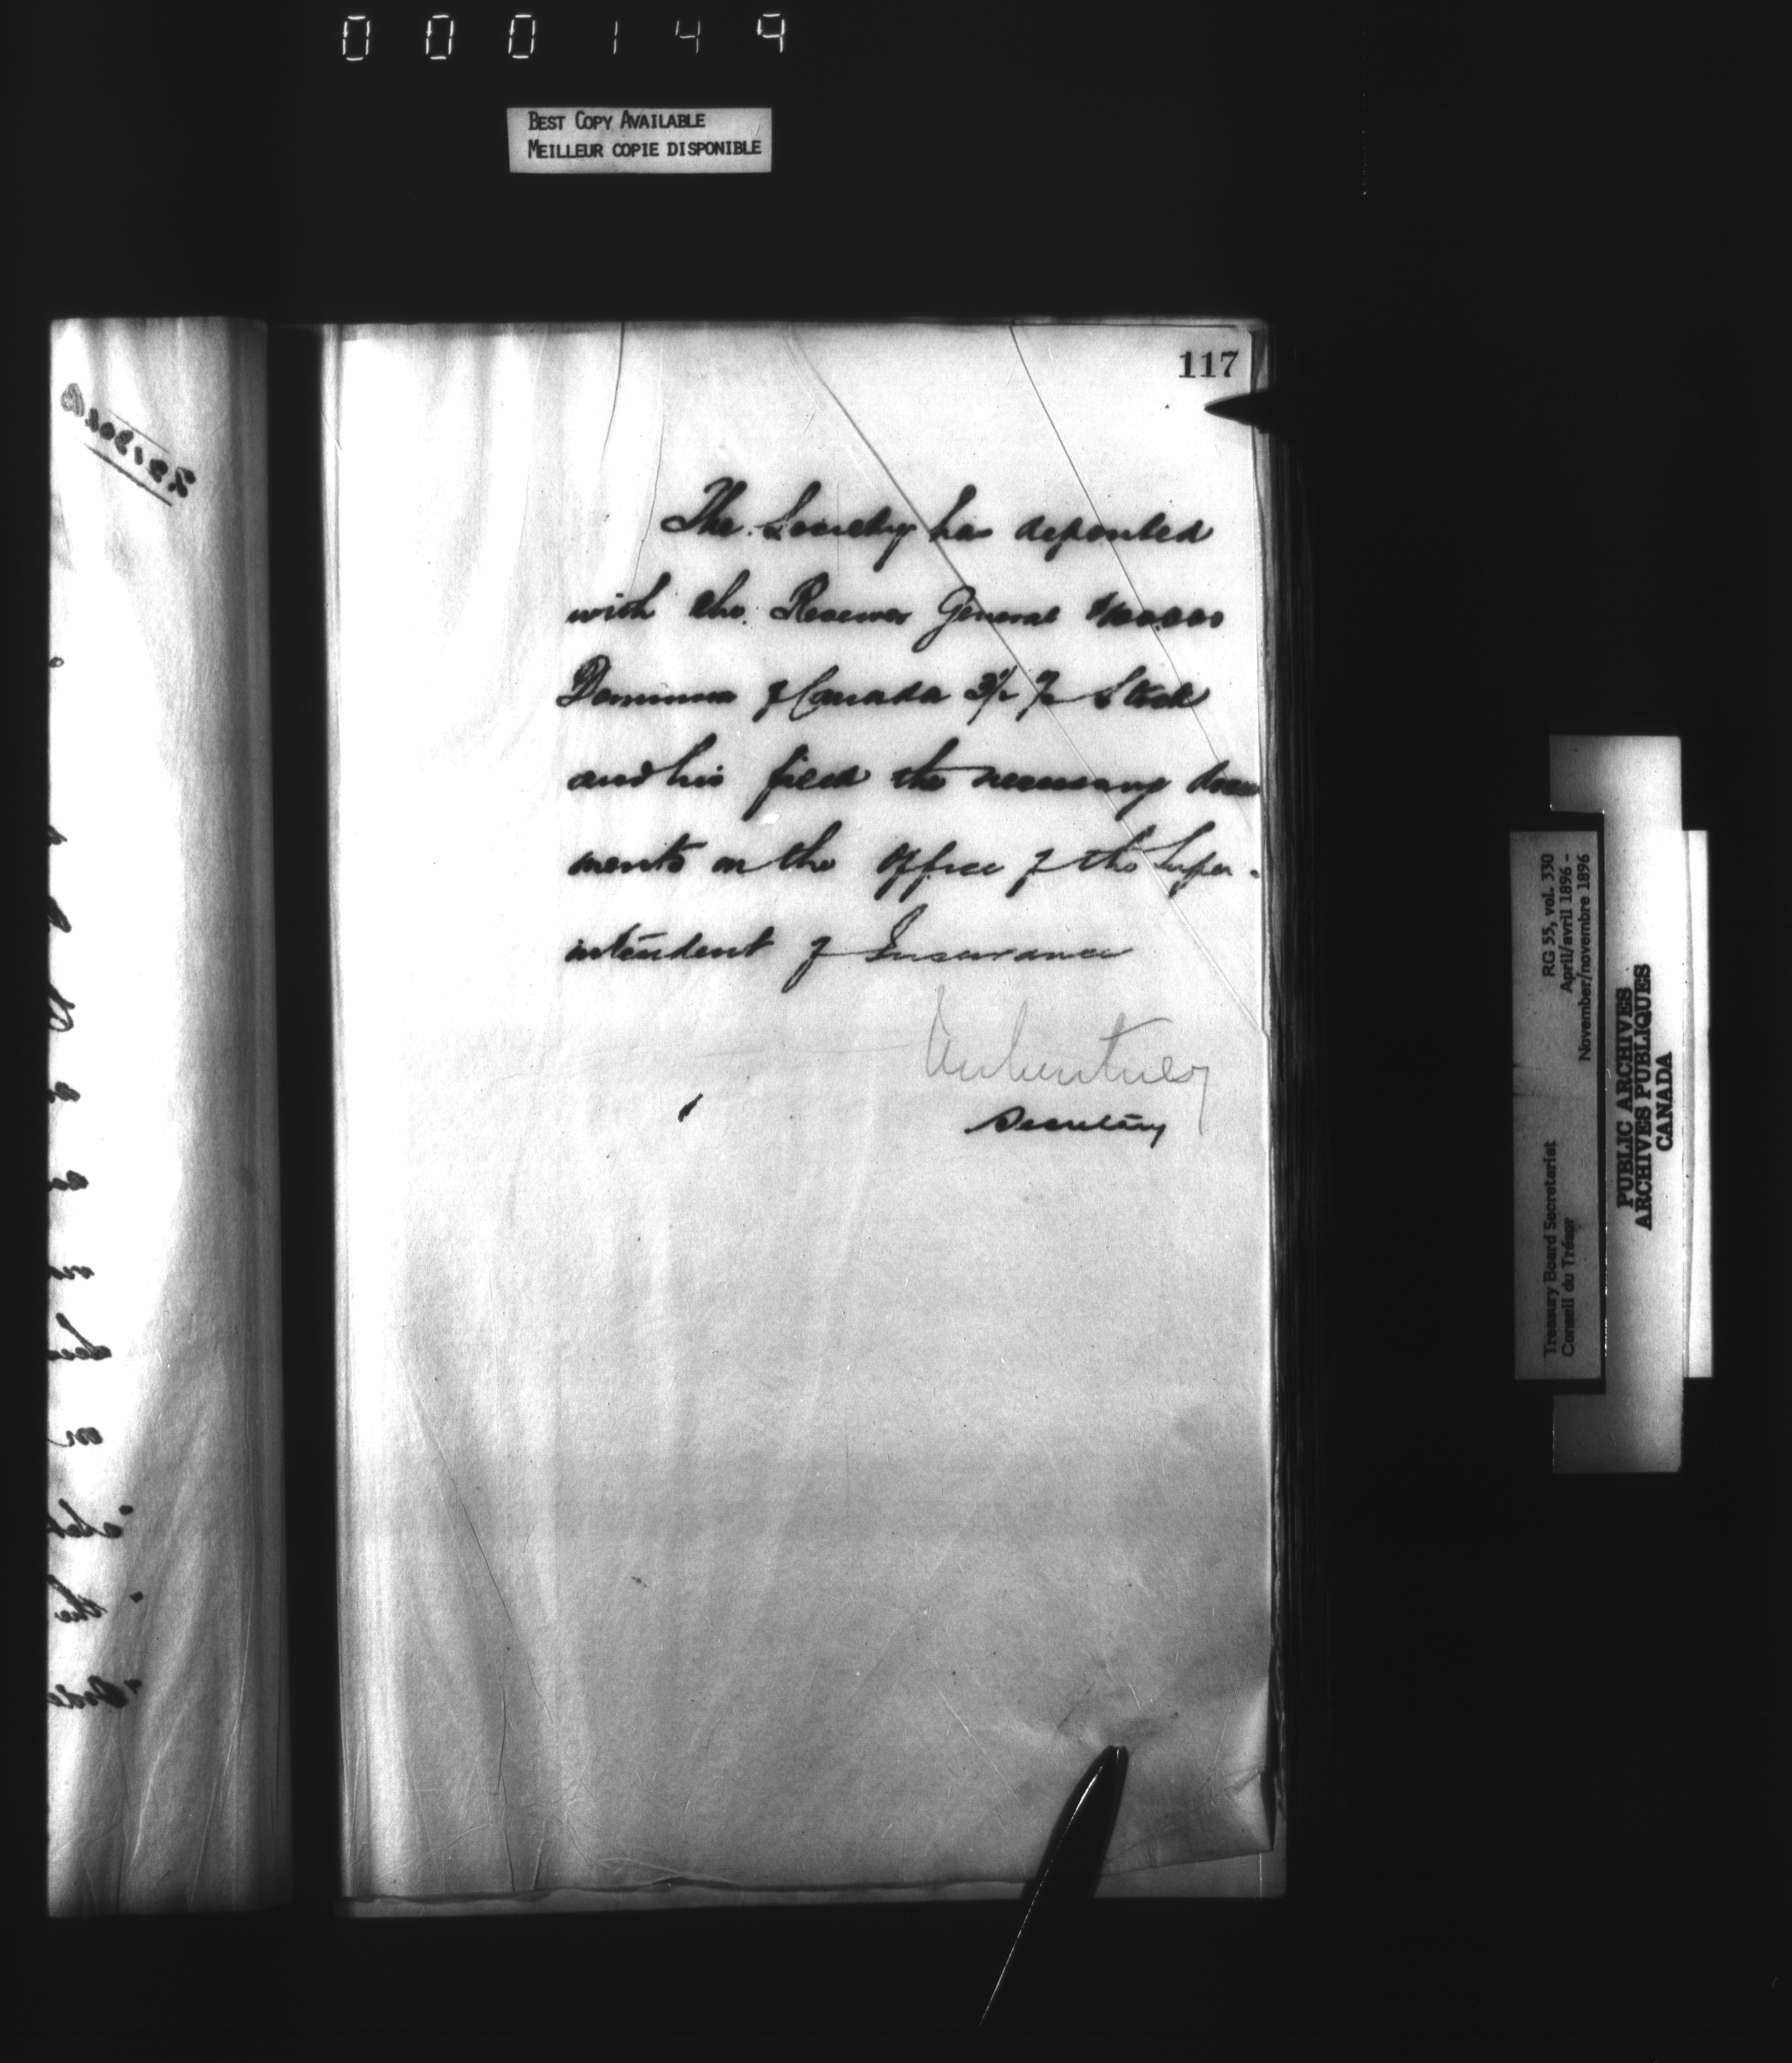 000149
BEST COPY AVAILABLE
MEILLEUR COPIE DISPONIBLE
117
The Society has deposited
with the Receiver General
Dominion of Canada 3½ % Stock
and has filed the necessary docu
ments in the Office of the Super-
intendent of Insurance
Secretary
Treasury Board Secretariat RG 55, vol. 330
Conseil du Trésor April/avril 1896 -
November/novembre 1896
PUBLIC ARCHIVES
ARCHIVES PUBLIQUES
CANADA